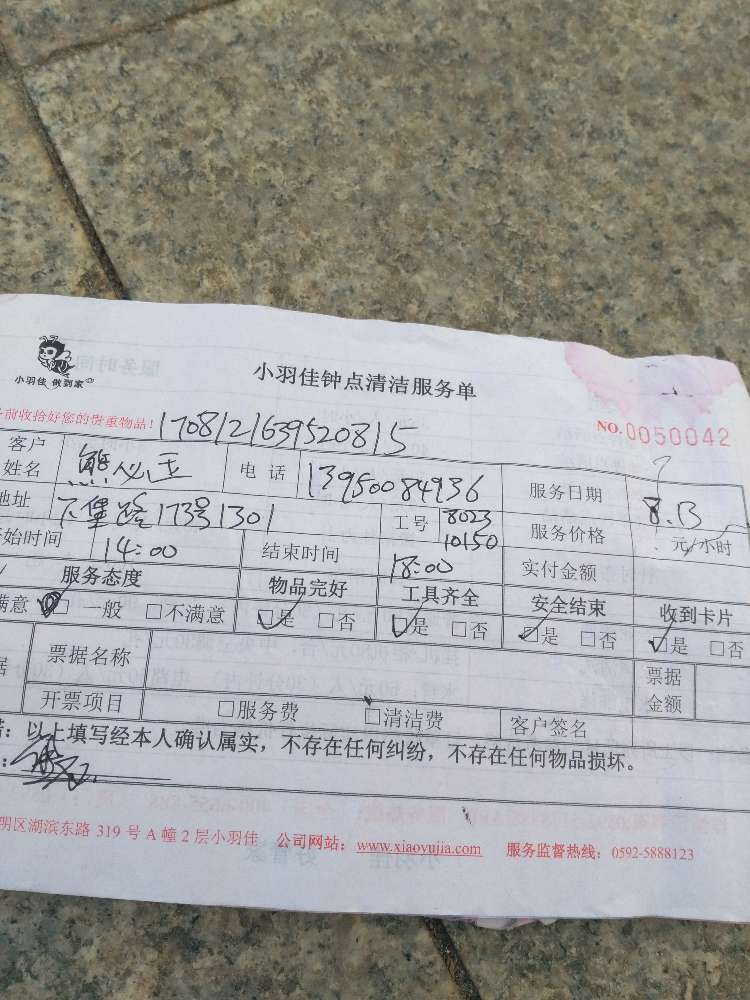 小羽佳 做到家
小羽佳钟点清洁服务单
前收拾好您的贵重物品! 1708121639520815 NO.0050042
客户姓名 熊必玉 电话 13950084936 服务日期 8.13
地址 下堡路173号1301 工号 8023 10150 服务价格 元/小时
始时间 14:00 结束时间 18:00 实付金额
服务态度 物品完好 工具齐全 安全结束 收到卡片
满意 □一般 □不满意 □是 □否 □是 □否 □是 □否 □是 □否
据 票据名称 票据金额
开票项目 □服务费 □清洁费 客户签名
: 以上填写经本人确认属实，不存在任何纠纷，不存在任何物品损坏。
明区湖滨东路 319 号 A 幢 2 层小羽佳 公司网站：www.xiaoyujia.com 服务监督热线：0592-5888123